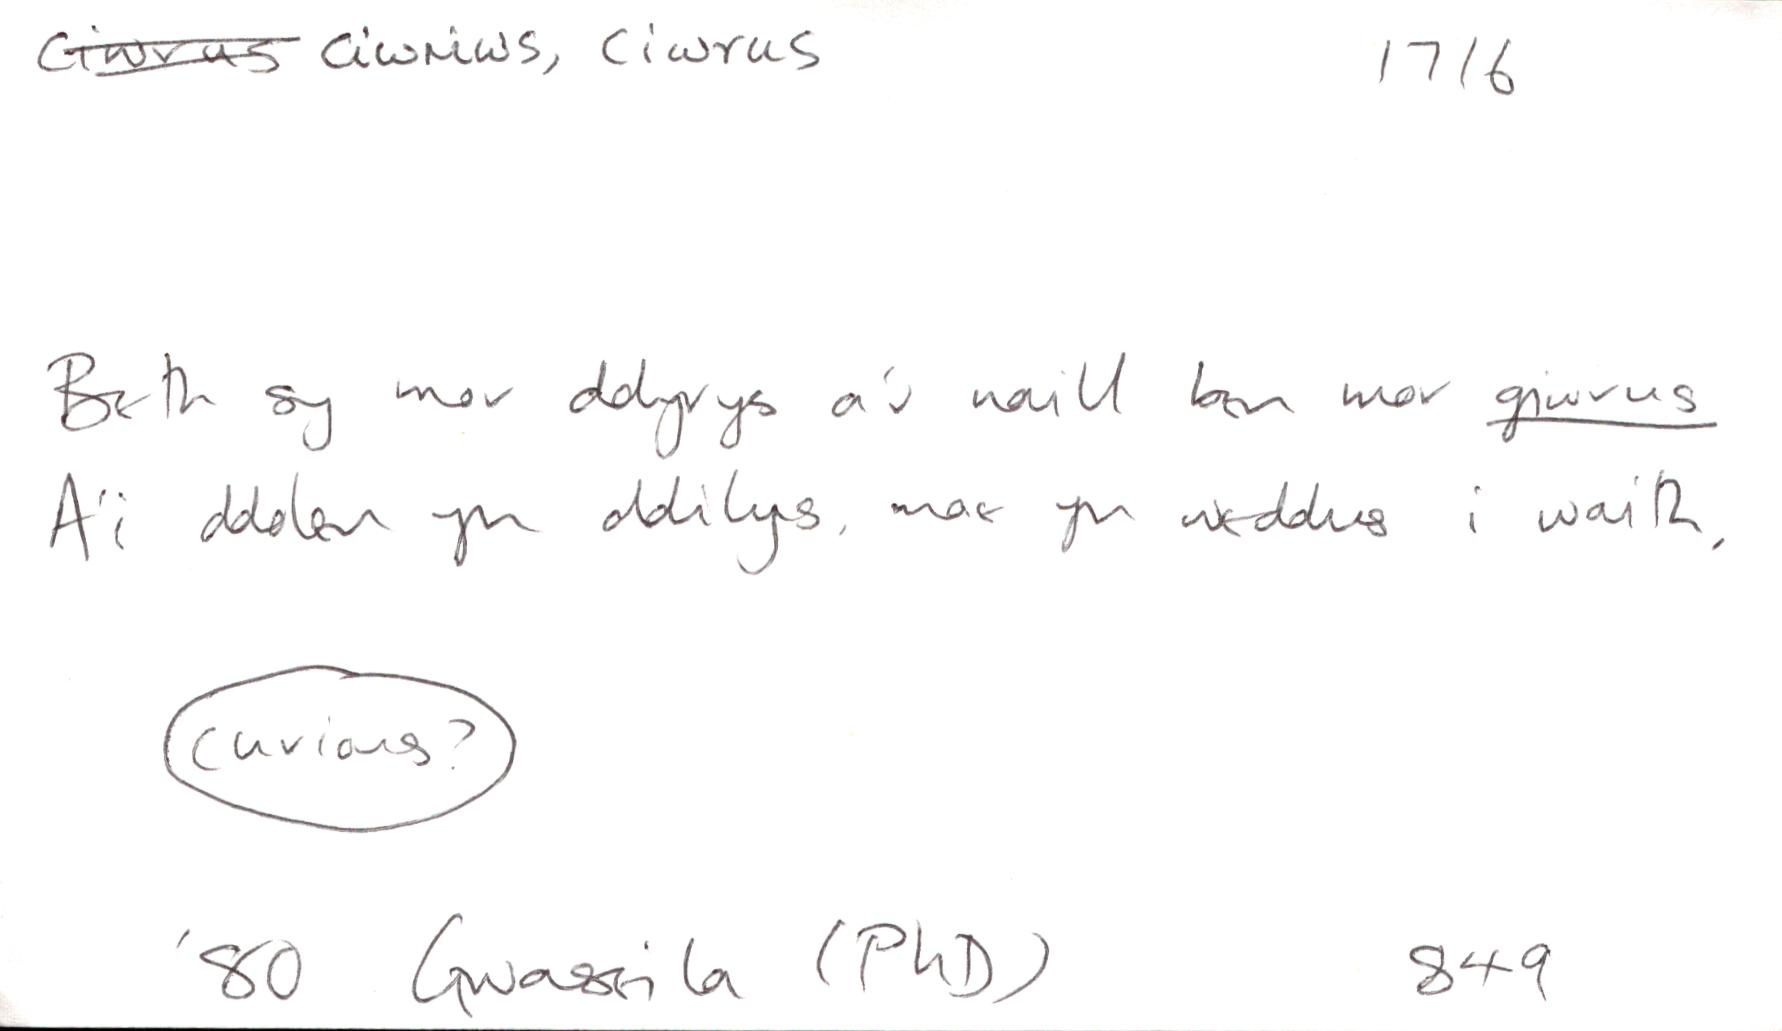 Ciwrus Ciwriws, Ciwrus 1716
Beth sy mor ddyrys a'r naill ben mor giwrus
A'i ddolen yn ddilys, mae yn weddus i waith,
curious?
'80 Gwaseila (PhD) 849